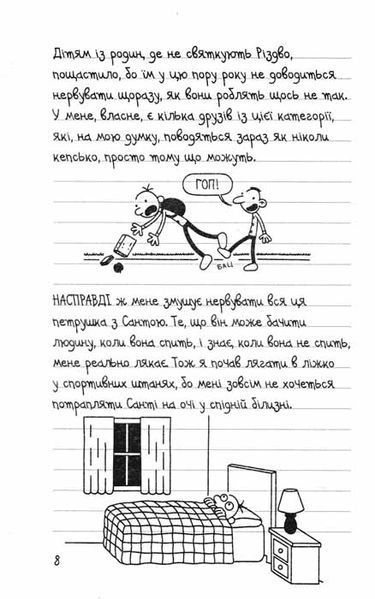 Дітям із родин, де не святкують Різдво,
пощастило, бо їм у цю пору року не доводиться
нервувати щоразу, як вони роблять щось не так.
У мене, власне, є кілька друзів із цієї категорії,
які, на мою думку, поводяться зараз як ніколи
кепсько, просто тому що можуть.
ГОП!
БАЦ
НАСПРАВДІ ж мене змушує нервувати вся ця
петрушка з Сантою. Те, що він може бачити
людину, коли вона спить, і знає, коли вона не спить,
мене реально лякає. Тож я почав лягати в ліжко
у спортивних штанях, бо мені зовсім не хочеться
потрапляти Санті на очі у спідній білизні.
8